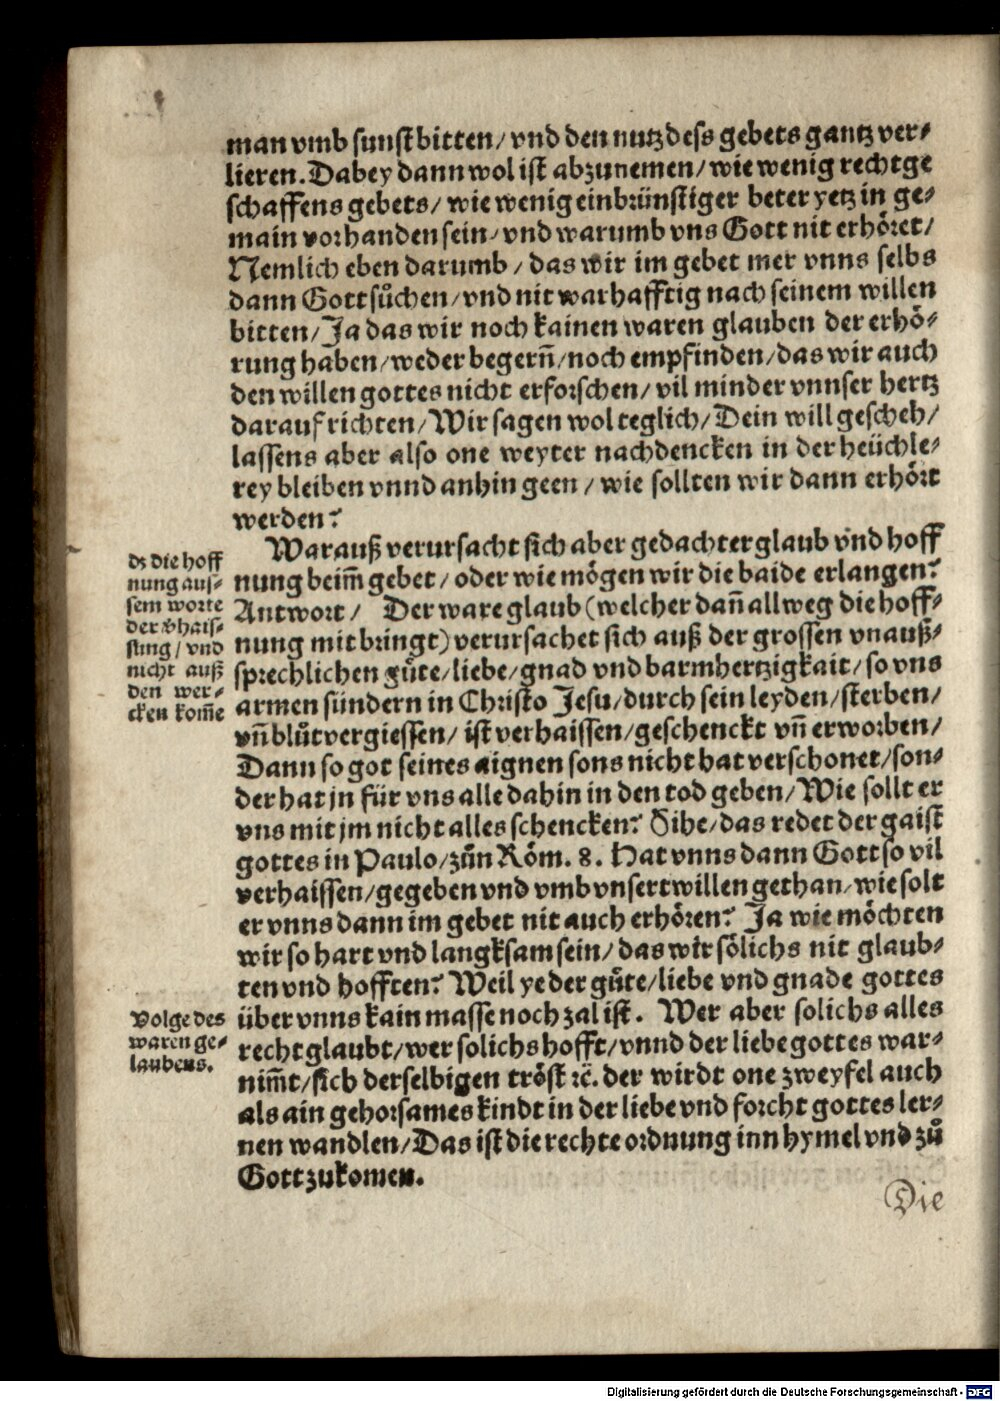 man vmb sunst bitten/ vnd den nutz dess gebets gantz ver-
lieren. Dabey dann wol ist abzunemen/ wie wenig rechtge
schaffens gebets/ wie wenig einbrünstiger beter yetz in ge-
main vorhanden sein/ vnd warumb vns Gott nit erhöret/
Nemlich eben darumb/ das wir im gebet mer vnns selbs
dann Gott sůchen/ vnd nit warhafftig nach seinem willen
bitten/ Ja das wir noch kainen waren glauben der erhö-
rung haben/ weder begern̄/ noch empfinden/ das wir auch
den willen gottes nicht erforschen/ vil minder vnnser hertz
darauf richten/ Wir sagen wol teglich/ Dein will gescheh/
lassens aber also one weyter nachdencken in der heüchle-
rey bleiben vnnd anhin geen/ wie sollten wir dann erhört
werden?
Warauß verursacht sich aber gedachter glaub vnd hoff
nung beim̄ gebet/ oder wie mögen wir die baide erlangen?
Antwort/ Der ware glaub (welcher dan̄ allweg die hoff-
nung mitbringt) verursachet sich auß der grossen vnauß-
sprechlichen gůte/ liebe/ gnad vnd barmhertzigkait/ so vns
armen sündern in Christo Jesu/ durch sein leyden/ sterben/
vn̄ blůtvergiessen/ ist verhaissen/ geschenckt vn̄ erworben/
Dann so got seines aignen sons nicht hat verschonet/ son-
der hat jn für vns alle dahin in den tod geben/ Wie sollt er
vns mit jm nicht alles schencken? Sihe/ das redet der gaist
gottes in Paulo/ zůn Röm. 8. Hat vnns dann Gott so vil
verhaissen/ gegeben vnd vmb vnsert willen gethan/ wie solt
er vnns dann im gebet nit auch erhören? Ja wie möchten
wir so hart vnd langksam sein/ das wir sölichs nit glaub-
ten vnd hofften? Weil ye der gůte/ liebe vnd gnade gottes
über vnns kain masse noch zal ist. Wer aber solichs alles
recht glaubt/ wer solichs hofft/ vnnd der liebe gottes war-
nim̄t/ sich derselbigen tröst ꝛc̄. der wirdt one zweyfel auch
als ain gehorsames kindt in der liebe vnd forcht gottes ler-
nen wandlen/ Das ist die rechte ordnung inn hymel vnd zů
Gott zukomen.
Die
dz die hoff
nung aus-
sem worte
der v̄hais-
sung/ vnd
nicht auß
den wer-
cken kom̄e
Volge des
waren ge-
laubens.
Digitalisierung gefördert durch die Deutsche Forschungsgemeinschaft - DFG